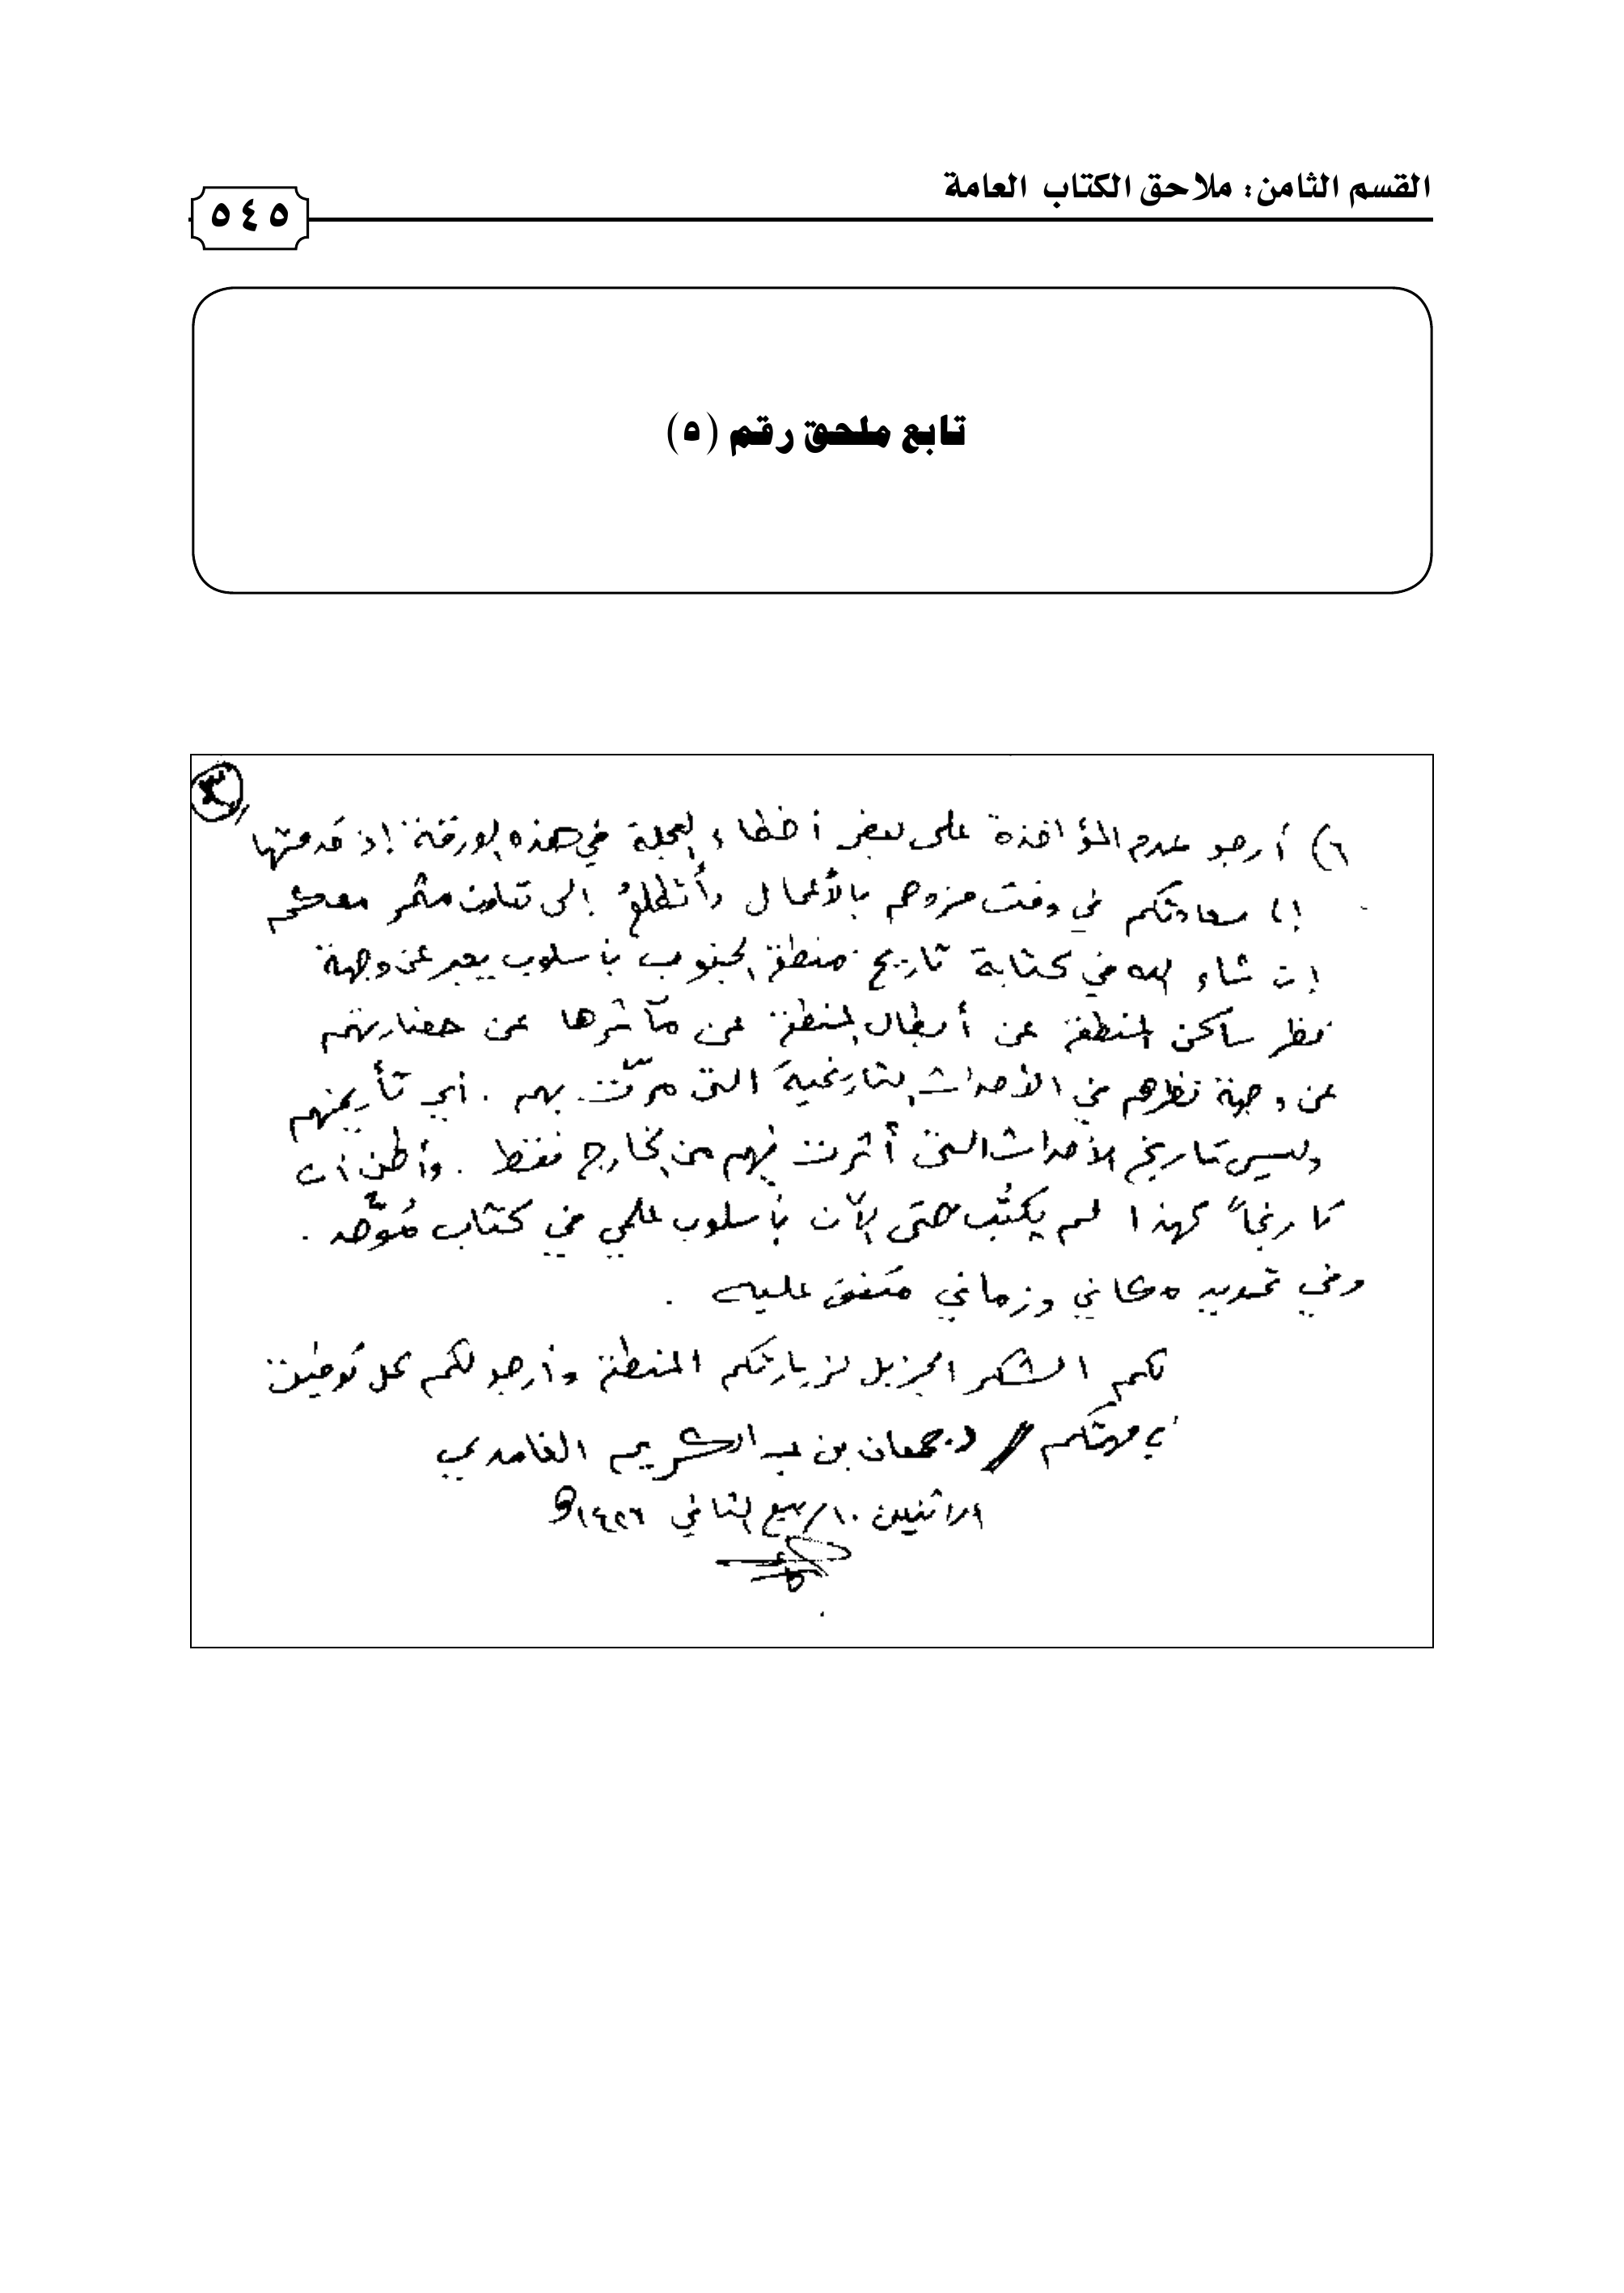 القسم الثامن: ملاحق الكتاب العامة
٥٤٥
تابع ملحق رقم (٥)
٣
٦) أرجو عدم المؤاخذة على بعض أخطاء العجلة في هذه الورقة إذ قدمتها
إلى سعادتكم في وقت مزدحم بالأعمال وأتطلعُ إلى تعاون مثمر معكم
إن شاء الله في كتابة تاريخ منطقة الجنوب بأسلوب يعبر عن وجهة
نظر ساكن المنطقة عن أبطال المنطقة عن مآثرها عن حضارتهم
عن وجهة نظرهم في الأحداث التاريخية التي مرّت بهم . أي تأريخهم
وليس تاريخ الأحداث التي أثرت فيهم من الخارج فقط . وأظن أن
تاريخاً كهذا لم يكتُب حتى الآن بأسلوب علمي في كتاب مُوحّد .
وفي تحديد مكاني وزماني متفق عليه .
لكم الشكر الجزيل لزيارتكم المنطقة وأرجو لكم كل توفيق
في مهمتكم // د. جمعان بن عبد الكريم الغامدي
الاثنين ١٠/ربيع الثاني ١٤٢٦هـ